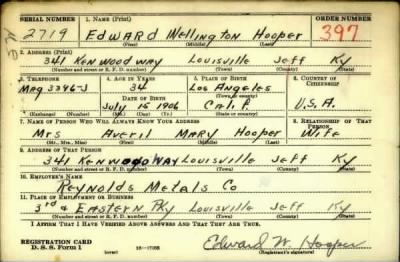 SERIAL NUMBER 1. NAME (Print) ORDER NUMBER
2719 EDWARD WELLINGTON HOOPER 397
(First) (Middle) (Last)
2. ADDRESS (Print)
341 KENWOOD WAY LOUISVILLE JEFF KY
(Number and street or R. F. D. number) (Town) (County) (State)
3. TELEPHONE 4. AGE IN YEARS 5. PLACE OF BIRTH 6. COUNTRY OF CITIZENSHIP
Mag 3396-J 34 LOS ANGELES
DATE OF BIRTH (Town or county)
July 15 1906 CALIF. U.S.A.
(Exchange) (Number) (Mo.) (Day) (Yr.) (State or country)
7. NAME OF PERSON WHO WILL ALWAYS KNOW YOUR ADDRESS 8. RELATIONSHIP OF THAT PERSON
MRS AVERIL MARY HOOPER WIFE
(Mr., Mrs., Miss) (First) (Middle) (Last)
9. ADDRESS OF THAT PERSON
341 KENWOOD WAY LOUISVILLE JEFF KY
(Number and street or R. F. D. number) (Town) (County) (State)
10. EMPLOYER'S NAME
REYNOLDS METALS CO
11. PLACE OF EMPLOYMENT OR BUSINESS
3rd & EASTERN PKY LOUISVILLE JEFF KY
(Number and street or R. F. D. number) (Town) (County) (State)
I AFFIRM THAT I HAVE VERIFIED ABOVE ANSWERS AND THAT THEY ARE TRUE.
REGISTRATION CARD
D. S. S. Form 1 (over) Edward W. Hooper
(Registrant's signature)